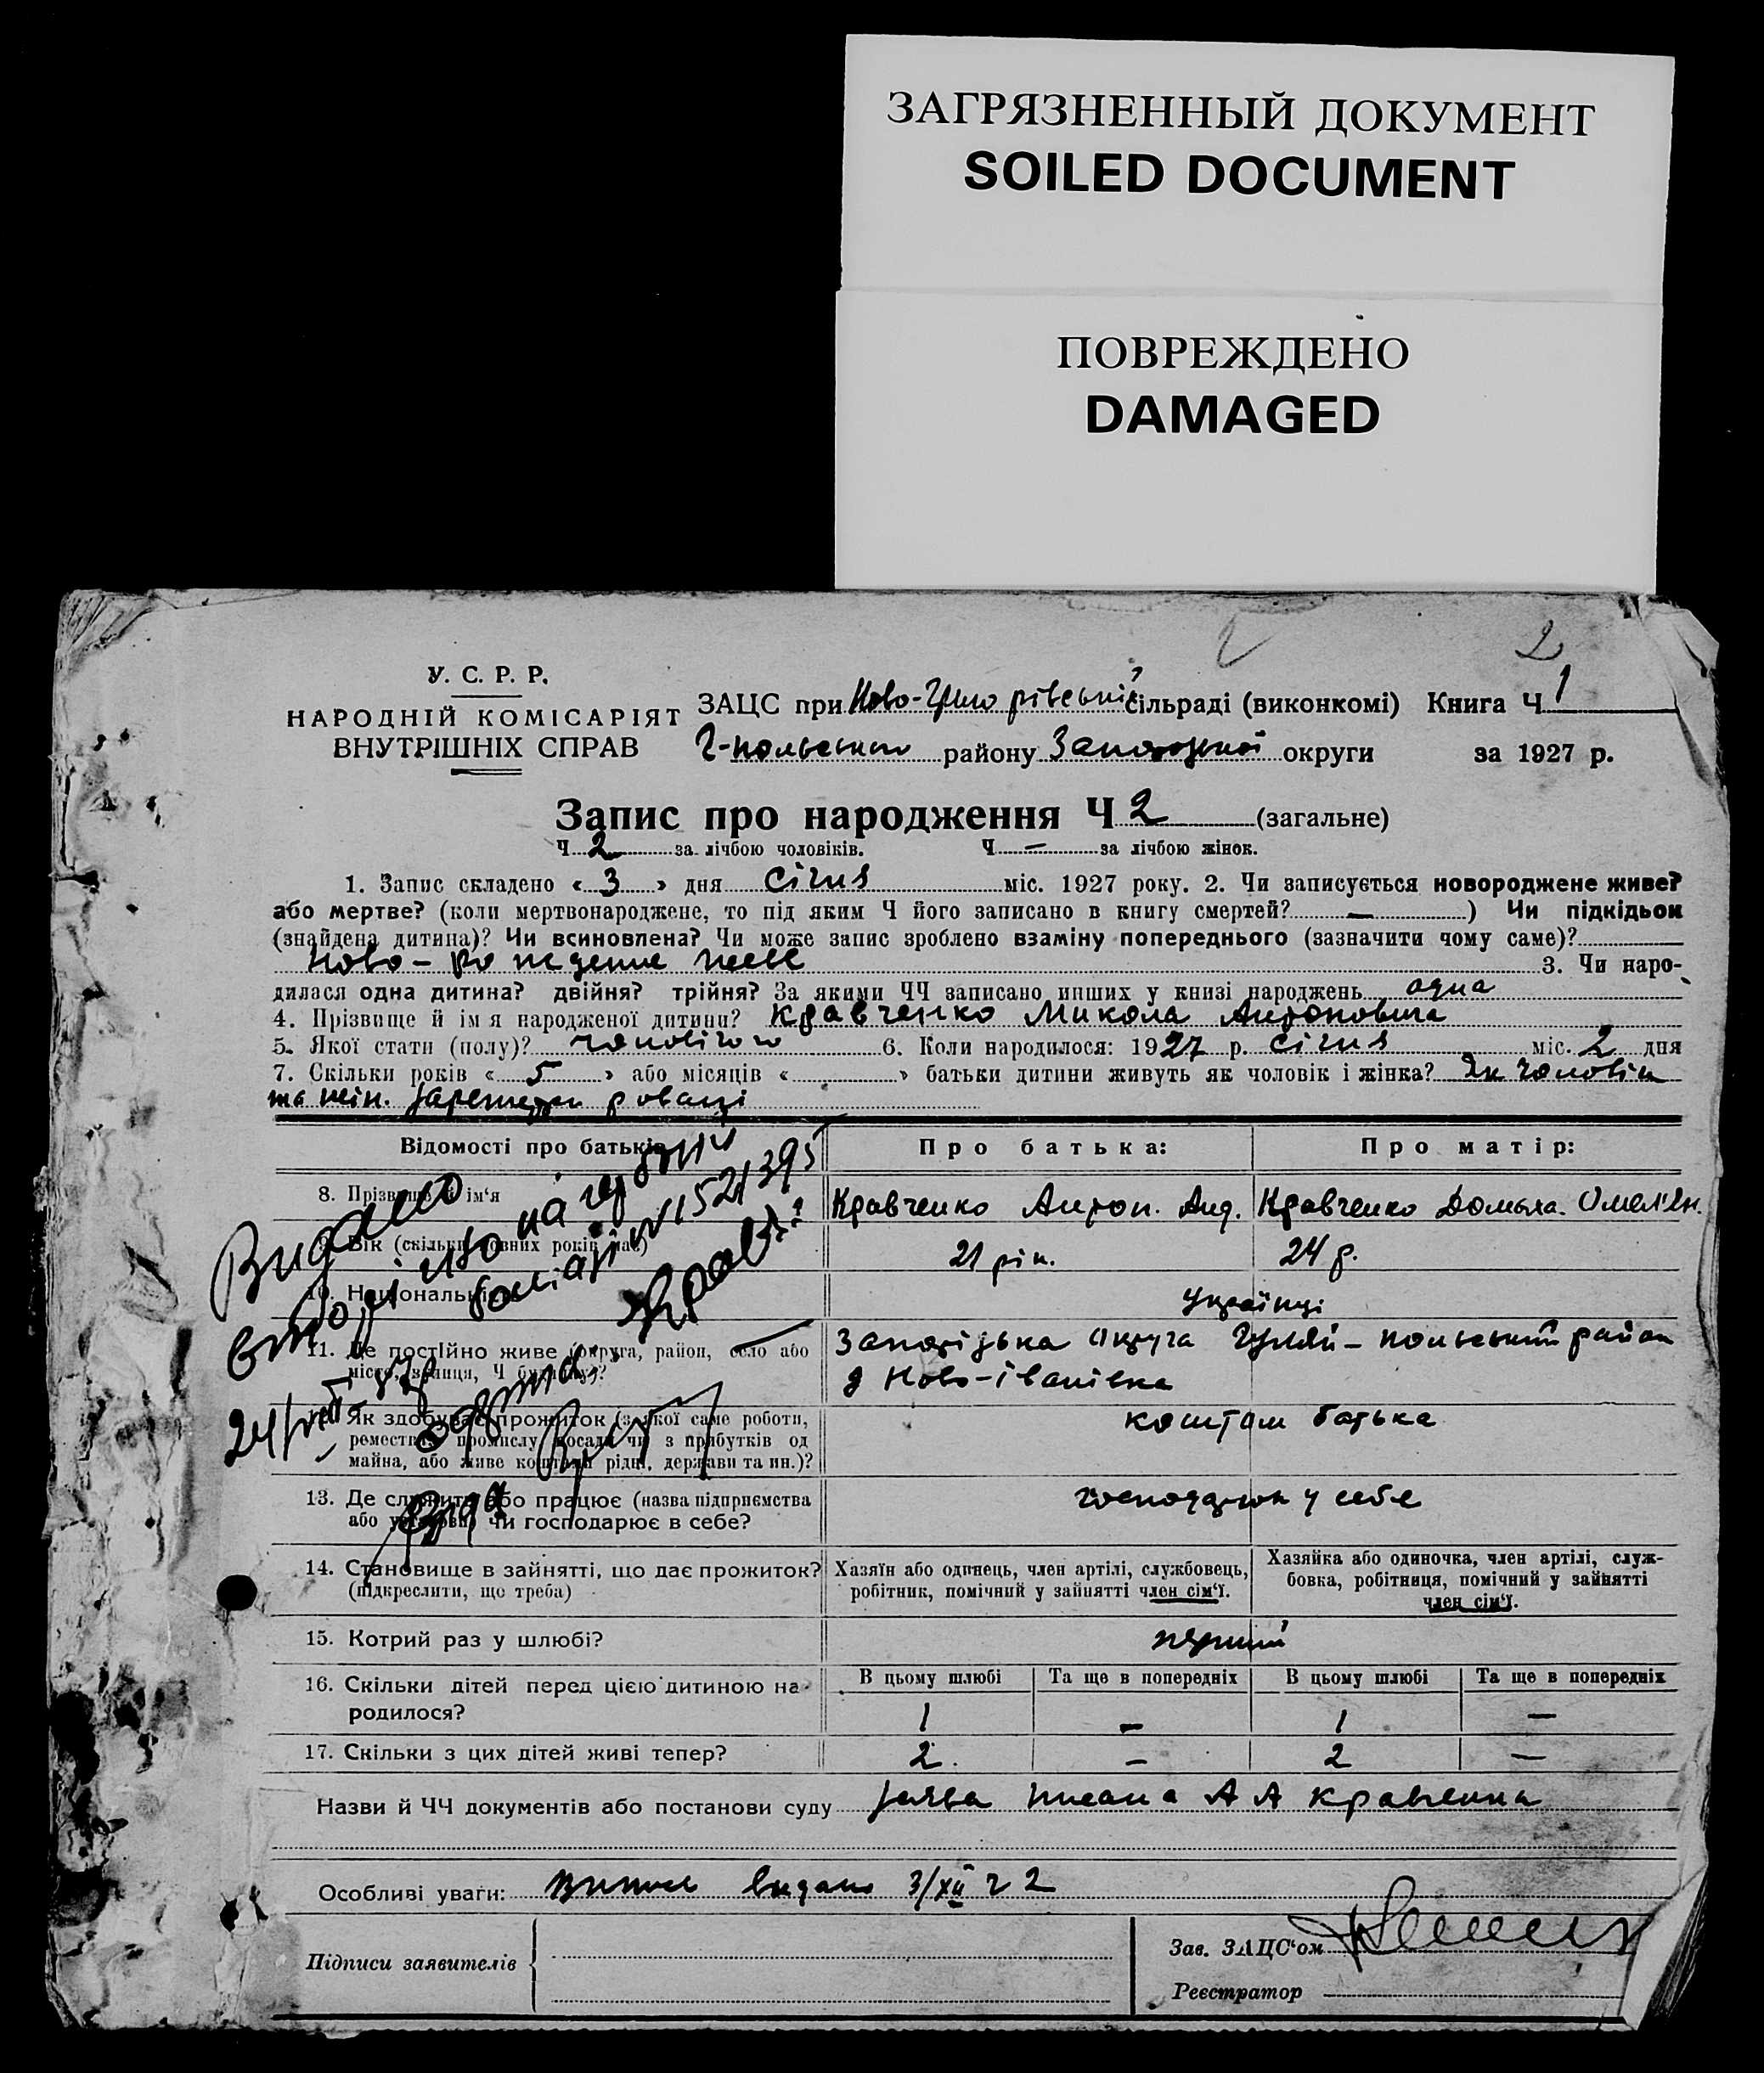 ЗАГРЯЗНЕННЫЙ ДОКУМЕНТ
SOILED DOCUMENT
ПОВРЕЖДЕНО
DAMAGED
2
У. С. Р. Р.
НАРОДНІЙ КОМІСАРІЯТ
ВНУТРІШНІХ СПРАВ
ЗАЦС при сільраді (виконкомі) Книга Ч 1
району Запорізької округи за 1927 р.
Запис про народження Ч 2 (загальне)
Ч 2 за лічбою чоловіків. Ч — за лічбою жінок.
1. Запис складено « 3 » дня січня міс. 1927 року. 2. Чи записується новороджене живе?
або мертве? (коли мертвонароджене, то під яким Ч його записано в книгу смертей? — ) Чи підкідьок
(знайдена дитина)? Чи всиновлена? Чи може запис зроблено взаміну попереднього (зазначити чому саме)?
Ново- живе 3. Чи наро-
дилася одна дитина? двійня? трійня? За якими ЧЧ записано инших у книзі народжень одна
4. Прізвище й ім я народженої дитини? Кравченко Микола Антоновича
5. Якої стати (полу)? чоловічого 6. Коли народилося: 1927 р. січня міс. 2 дня
7. Скільки років « 5 » або місяців « » батьки дитини живуть як чоловік і жінка? Як чоловік
та жін.
Відомості про батьків Про батька: Про матір:
8. Прізвище й ім'я Кравченко Антон. Анд. Кравченко Домаха. Омел'ян.
9. Вік (скільки повних років має) 21 рік. 24 р.
10. Національність Українці
11. Де постійно живе (округа, район, село або Запорізька округа Гуляй-польський район
місто, вулиця, Ч будинку)? Ново-Іванівка
12. Як здобуває прожиток (з якої саме роботи, коштом батька
ремества, промислу, посади чи з прибутків од
майна, або живе коштом рідні, держави та ин.)?
13. Де служить або працює (назва підприємства у себе
або установи) чи господарює в себе?
14. Становище в зайнятті, що дає прожиток? Хазяїн або одинець, член артілі, службовець, Хазяйка або одиночка, член артілі, служ-
(підкреслити, що треба) робітник, помічний у зайнятті член сім'ї. бовка, робітниця, помічний у зайнятті
член сім'ї.
15. Котрий раз у шлюбі? перший
16. Скільки дітей перед цією дитиною на- В цьому шлюбі Та ще в попередніх В цьому шлюбі Та ще в попередніх
родилося? 1 — 1 —
17. Скільки з цих дітей живі тепер? 2 — 2 —
Назви й ЧЧ документів або постанови суду заява А А Кравченка
Особливі уваги: видано 3/XII ч 2
Підписи заявителів
Зав. ЗАЦС'ом
Реєстратор
Видано